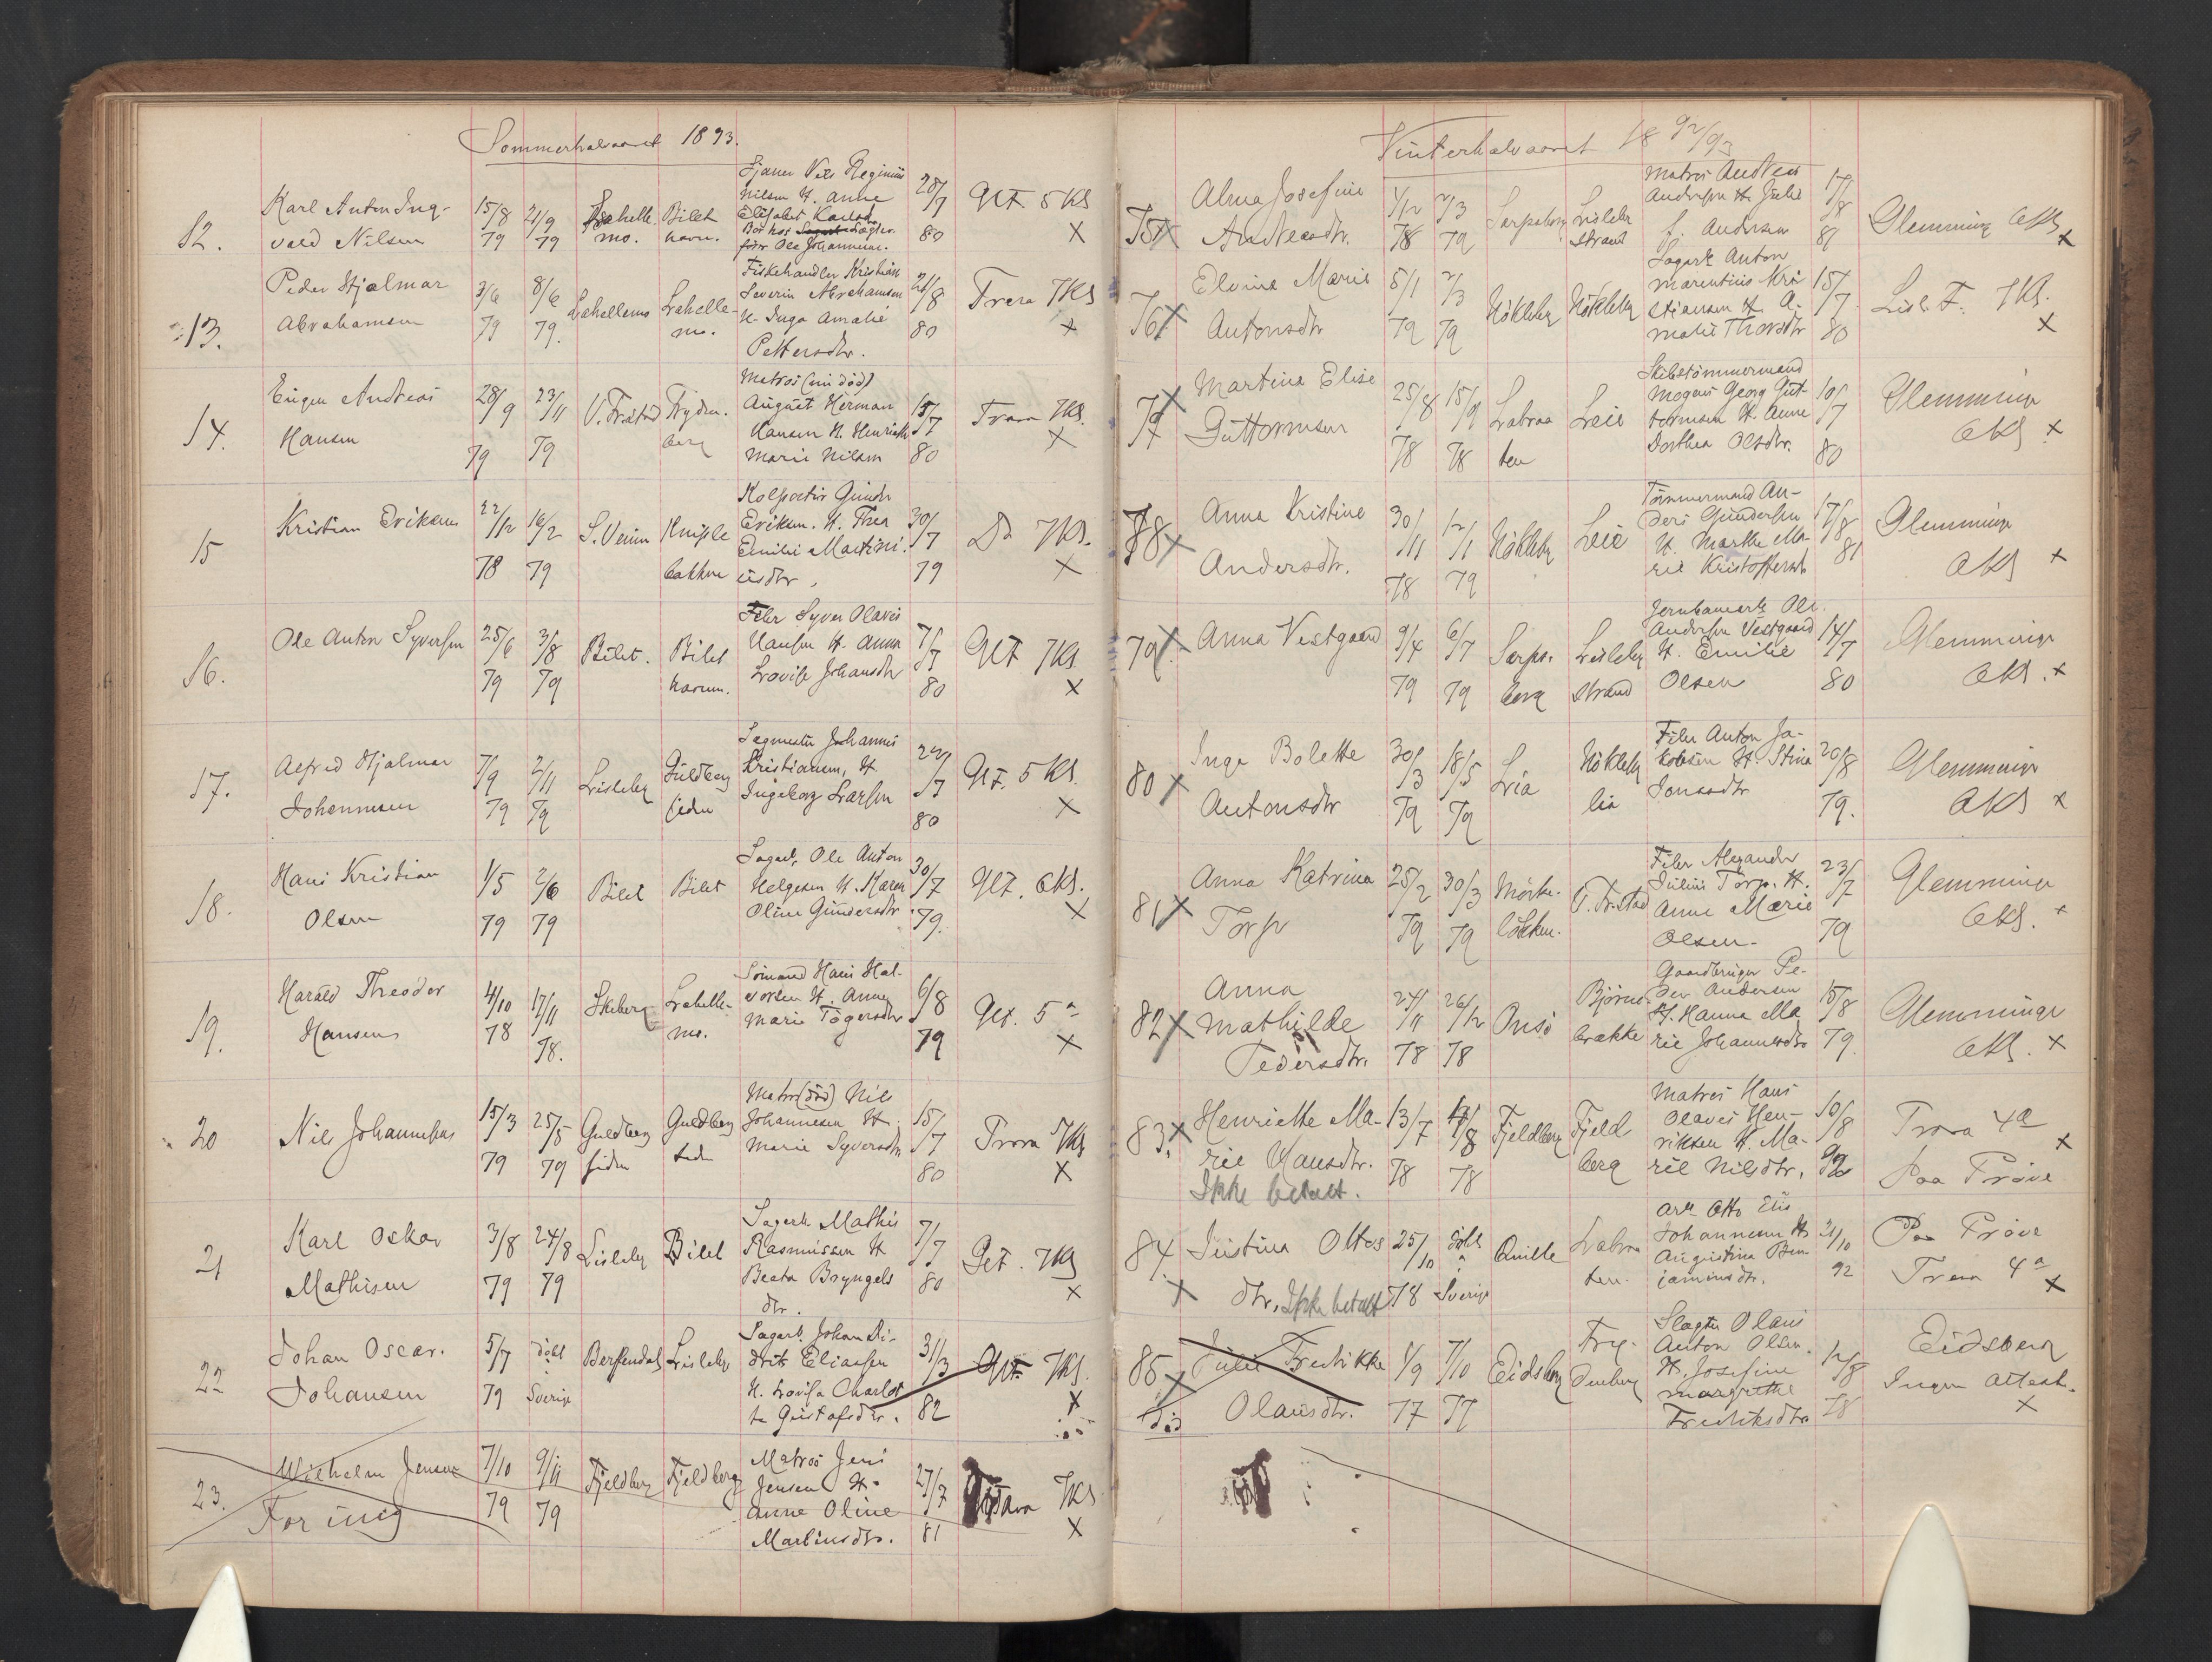 Sommerhalvaaret 1893.
12.
Karl Anton Ing-
vald Nilsen
15/8 79
21/9 79
Lahelle
mo.
Bilet
havn.
Sjøm Nels Reginius
Nilsen H. Anne
Elisabet Karlsd.
Bor hos
Ole Johannesen.
28/7 80
Glf 5 Kl
x
13.
Peder Hjalmar
Abrahamsen
3/6 79
8/6 79.
Lahellemo
Lahelle-
mo.
Fiskehandler Kristian
Severin Abrahamsen
H. Inga Amalie
Pettersdtr.
21/8 80
Trara 7 Kl
x
14.
Eugen Andreas
Hansen
28/9 79
23/11 79
V. Fr.stad
Fryden-
berg
Matros (nu død)
August Herman
Hansen H. Henriette
Marie Nilsen
15/7 80
Trara 7 Kl.
x
15
Kristian Eriksen
22/12 78
16/2 79
S. Venin
Kniple
bakken
Kolportør Gunder
Eriksen. H. Thea
Emilie Martini-
usdtr.
30/7 79
Do 7 Kl.
x
16.
Ole Anton Syversen
25/6 79
3/8 79
Bilet.
Bilet
havn.
Filer Syver Olaves
Hansen H. Anna
Lovise Johansdtr
7/7 80
Glf 7 Kl
x
17.
Alfred Hjalmar
Johannesen
7/9 79
2/11 79
Lisleby
Guldberg
siden
Sagmester Johannes
Kristiansen, H.
Ingeborg Larsen
22/7 80
Glf. 5 Kl.
x
18.
Hans Kristian
Olsen
1/5 79
2/6 79
Bilet
Bilet
Sagarb. Ole Anton
Helgesen H. Karen
Oline Gundersdtr
30/7 79.
Glf. 6 Kl.
x
19.
Harald Theodor
Hansen
4/10 78
17/11 78.
Skiberg
Lahelle-
mo.
Sømand Hans Hal-
vorsen H. Anne
Marie Tøgersdtr
6/8 79
Glf. 5 a
x
20
Nils Johannesen
15/3 79
25/5 79
Guldberg
siden
Guldberg
siden
Matros (død) Nils
Johannesen H.
Marie Syversdtr
15/7 80
Trara 7 Kl
x
21
Karl Oskar
Mathisen
3/8 79
24/8 79
Lisleby
Bilet
Sagarb. Mathis
Rasmussen H
Beata Bryngels
dtr.
7/7 80
Glf. 7 Kl
x
22
Johan Oscar.
Johansen
5/7 79
døbt
Sverige
Berfendal
Lisleby
Sagarb. Johan Di-
drik Eliassen
H. Lovisa Charlot
te Gustafsdtr.
31/3 82
Glf. 7 Kl.
x
23.
Wilhelm Jensen
For ung
7/10 79
9/11 79
Fjeldberg
Fjeldberg
Matros Jens
Jensen H.
Anne Oline
Martinsdtr.
27/7 81
Trara 7 Kl
x
Vinterhalvaaret 18 92/93
75 x
Alma Josefine
Andreasdtr.
1/12 78
2/3 79
Sarpsborg
Lisleby
strand
Matros Andreas
Andersen H. Julie
f. Andersen
17/8 81
Glemminge 6 Kl
x
76 x
Elvine Marie
Antonsdtr
5/1 79
2/3 79
Nökleby
Nökleby
Sagarb. Anton
Marentius Kri-
stiansen H. A-
malie Thorsdtr
15/7 80
Lisl. F. 7 Kl.
x
77 x
Martine Elise
Guttormsen
25/8 78
15/9 78
Labraa
ten
Leie
Skibstømmermand
Mogens Georg Gut-
tormsen H. Anne
Dorthea Olsdtr.
10/7 80
Glemminge
6 Kl x
78 x
Anna Kristine
Andersdtr.
30/11 78
12/1 79
Nökleby
Leie
Tømmermand An-
ders Gundersen
H. Marthe Ma-
rie Kristoffersdtr
17/8 81
Glemminge
6 Kl x
79 x
Anna Vestgaard
9/4 79
6/7 79
Sarps-
borg
Lisleby
strand
Jernbanearb. Ole
Andersen Vestgaard
H. Emilie
Olsen
14/7 80
Glemminge
6 Kl. x
80 x
Inga Bolette
Antonsdtr
30/3 79
18/5 79
Lia
Nökleby
lia
Filer Anton Ja-
kobsen H. Stina
Jonasdtr
20/8 79.
Glemminge
6 Kl x
81 x
Anna Katrina
Torp
25/2 79
30/3 79
Mörke-
lökken.
V. Fr.stad
Filer Alexander
Julius Torp. H.
Anne Marie
Olsen.
23/7 79
Glemminge
6 Kl. x
82 x
Anna
Mathilde
Pedersdtr.
24/11 78
26/12 78
Onsö
Björne-
bække
Gaardbruger Pe-
der Andersen
H. Hanna Ma
rie Johannesdtr
15/8 79.
Glemminge
6 Kl. x
83. x
Henriette Ma-
rie Hansdtr.
Ikke betalt.
13/7 78
4/8 78
Fjeldberg
Fjeld
berg
Matros Hans
Olaves Hen-
riksen H. Ma-
rie Nilsdtr.
10/8 92
Trara 4 a
x
Paa Prøve
84. x
Justina Ottos
dtr. Ikke betalt
25/10 78
døbt
i
Sverige
Qville
Labraa
ten.
Arb. Otto Elis
Johannesen H
Augustina Ben-
jaminsdtr.
31/10 92
Paa Prøve
Trara 4 a
x
85 x
død
Julie Fredrikke
Olausdtr.
1/9 77
7/10 77
Eidsberg
Fry-
denberg
Slagter Olaus
Anton Olsen.
H. Josefine
Margrethe
Fredriksdtr
12/8 78
Eidsberg
Ingen Attest.
x